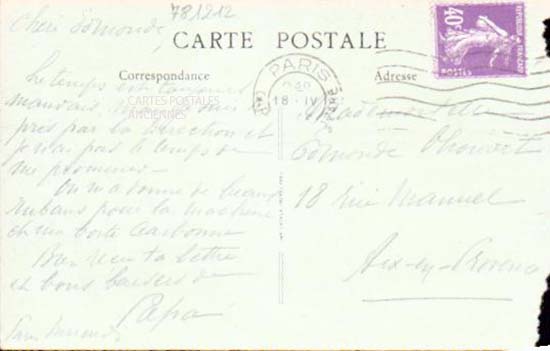 781212
Chère Edmonde,
CARTE POSTALE
Correspondance
Adresse
PARIS
18 - IV
40c
POSTES
Le temps est toujours
mauvais,
CARTES POSTALES
ANCIENNES
pris par la Direction et
je n'ai pas le temps de
me promener -
On m'a donné de beaux
rubans pour la machine
et une boîte carbone
Bien reçu ta lettre
et bons baisers de
Papa
Mademoiselle
Edmonde
18 rue Manuel
Aix-en-Provence